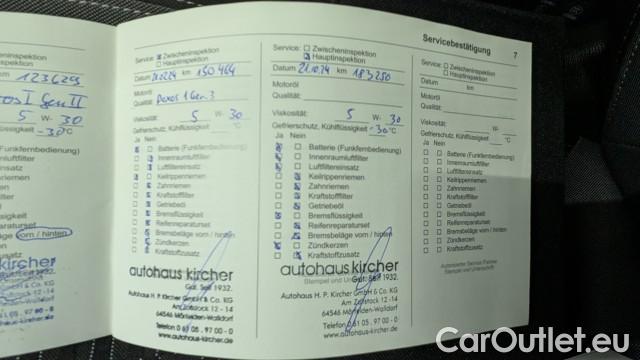 Servicebestätigung 7
123629
Pos I Gen II
5 W- 30
-30°C
(Funkfernbedienung)
vorn / hinten
kircher
Service: Zwischeninspektion
Hauptinspektion
Datum km 150 464
Motoröl
Qualität: Dexos 1 Gen. 3
Viskosität: 5 W- 30
Gefrierschutz, Kühlflüssigkeit °C
Ja Nein
Batterie (Funkfernbedienung)
Innenraumluftfilter
Luftfiltereinsatz
Keilrippenriemen
Zahnriemen
Kraftstofffilter
Getriebeöl
Bremsflüssigkeit
Reifenreparaturset
Bremsbeläge vorn / hinten
Zündkerzen
Kraftstoffzusatz
autohaus kircher
Gut. Seit 1932.
Autohaus H. P. Kircher GmbH & Co. KG
Am Zollstock 12 - 14
64546 Mörfelden-Walldorf
Telefon 0 61 05 . 97 00 - 0
www.autohaus-kircher.de
Service: Zwischeninspektion
Hauptinspektion
Datum 21.10.24 km 183 250
Motoröl
Qualität:
Viskosität: 5 W- 30
Gefrierschutz, Kühlflüssigkeit -30°C
Ja Nein
Batterie (Funkfernbedienung)
Innenraumluftfilter
Luftfiltereinsatz
Keilrippenriemen
Zahnriemen
Kraftstofffilter
Getriebeöl
Bremsflüssigkeit
Reifenreparaturset
Bremsbeläge vorn / hinten
Zündkerzen
Kraftstoffzusatz
autohaus kircher
Gut. Seit 1932.
Autohaus H. P. Kircher GmbH & Co. KG
Am Zollstock 12 - 14
64546 Mörfelden-Walldorf
Telefon 0 61 05 . 97 00 - 0
www.autohaus-kircher.de
Service: Zwischeninspektion
Hauptinspektion
Datum km
Motoröl
Qualität:
Viskosität: W-
Gefrierschutz, Kühlflüssigkeit °C
Ja Nein
Batterie (Funkfernbedienung)
Innenraumluftfilter
Luftfiltereinsatz
Keilrippenriemen
Zahnriemen
Kraftstofffilter
Getriebeöl
Bremsflüssigkeit
Reifenreparaturset
Bremsbeläge vorn / hinten
Zündkerzen
Kraftstoffzusatz
Autorisierter Service Partner
Stempel und Unterschrift
CarOutlet.eu